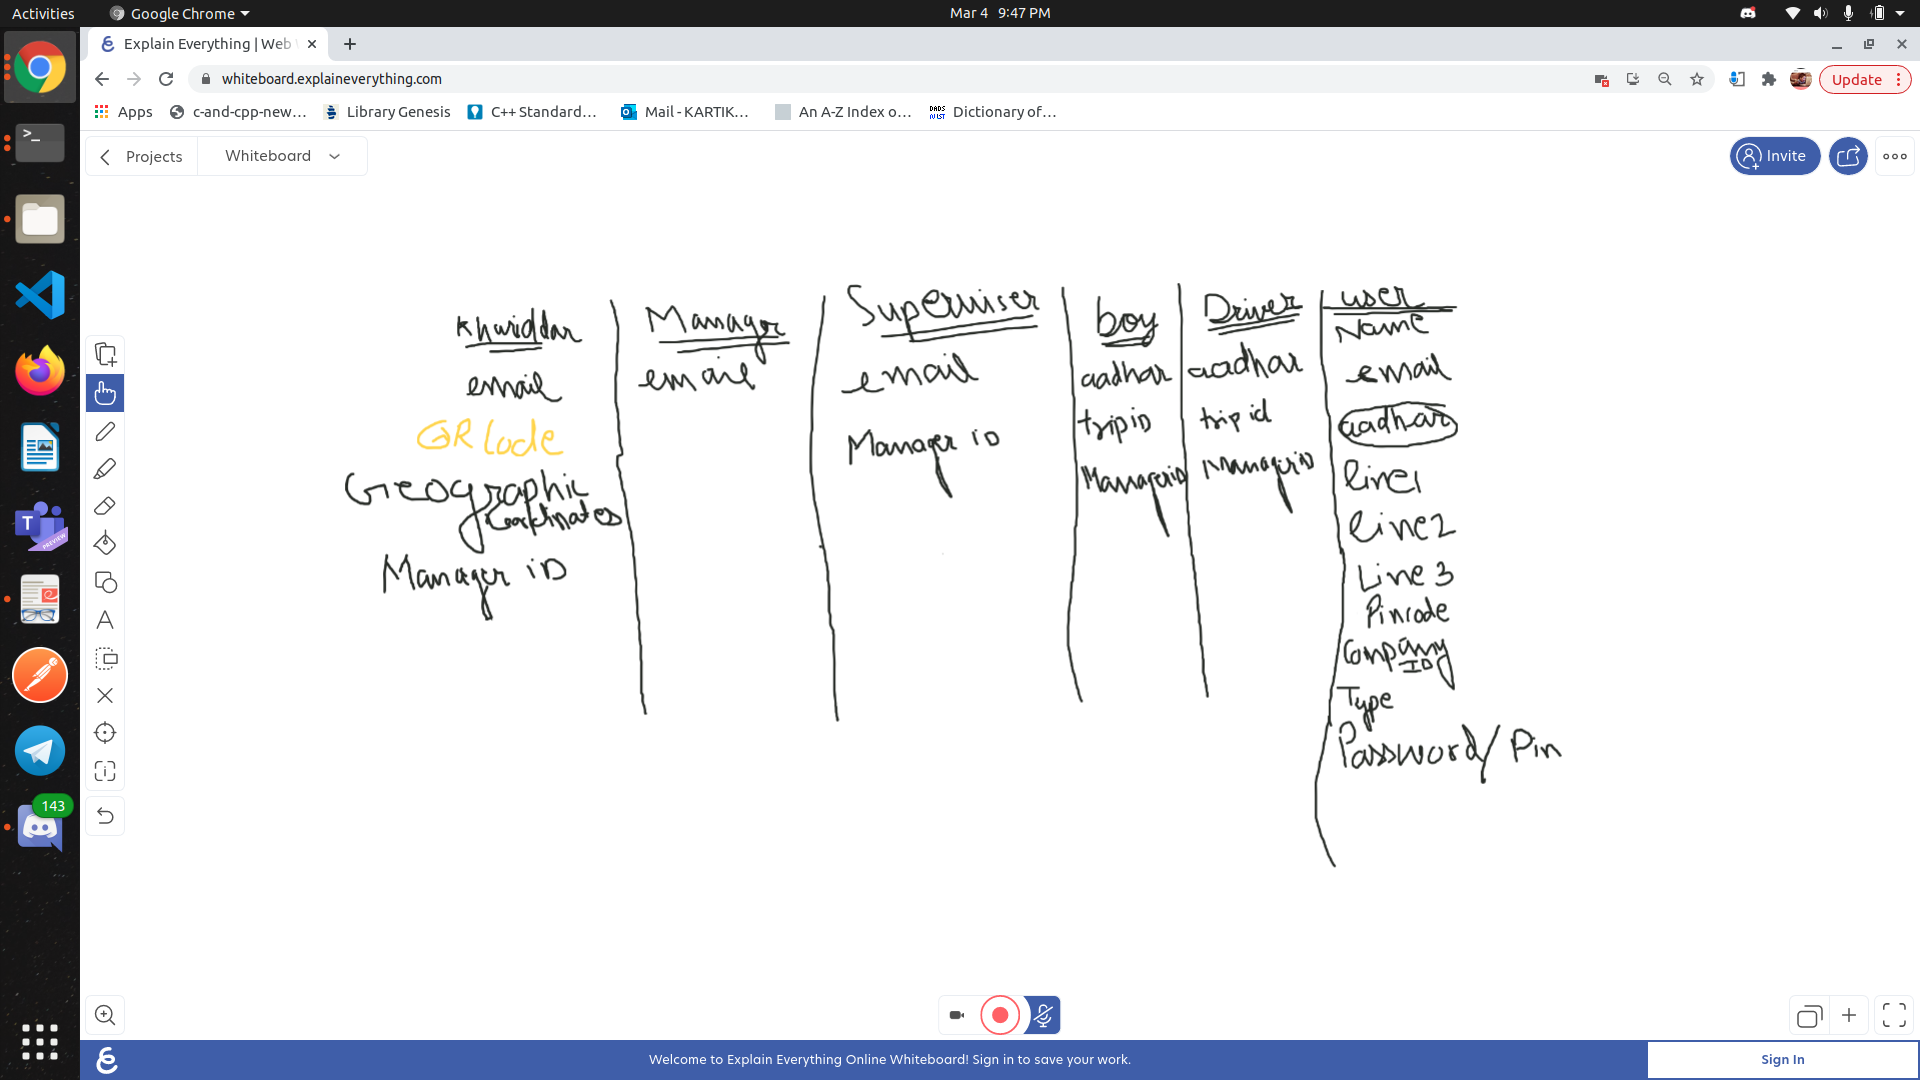 Activities
Google Chrome
Mar 4 9:47 PM
Explain Everything | Web
whiteboard.explaineverything.com
Update
Apps
c-and-cpp-new...
Library Genesis
C++ Standard...
Mail - KARTIK...
An A-Z Index o...
Dictionary of...
Projects
Whiteboard
Invite
Khariddar
email
QR Code
Geographic
Coordinates
Manager iD
Manager
email
Superviser
email
Manager iD
boy
aadhar
trip iD
Manager iD
Driver
aadhar
trip id
Manager iD
user
Name
email
aadhar
line1
line2
Line 3
Pincode
Company
ID
Type
Password/ Pin
143
Welcome to Explain Everything Online Whiteboard! Sign in to save your work.
Sign In